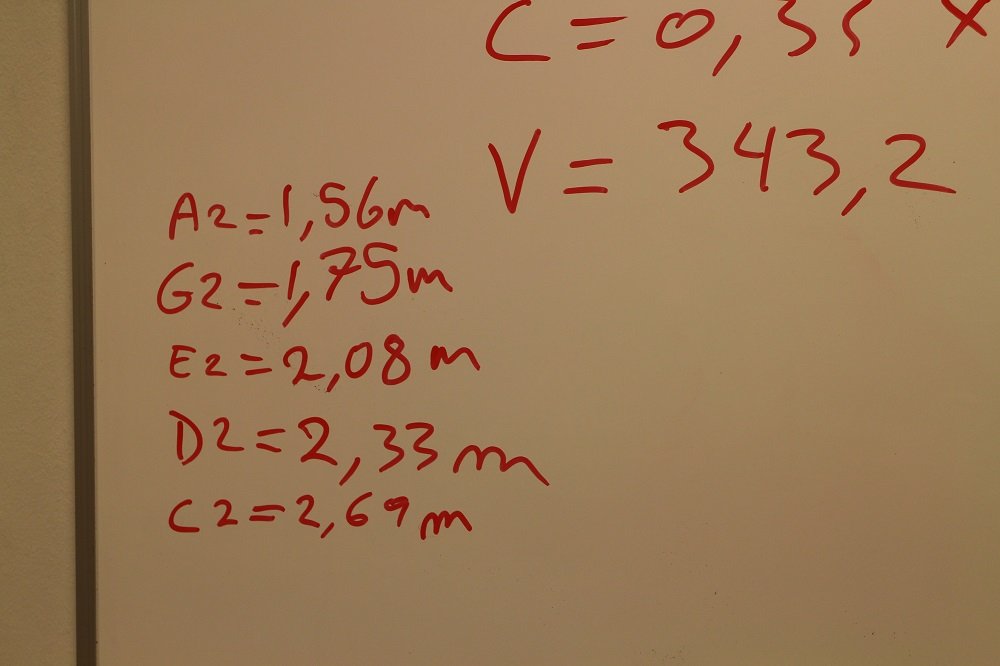 C = 0,35 x
V = 343,2
A2=1,56m
G2=1,75m
E2=2,08m
D2=2,33m
C2=2,69m